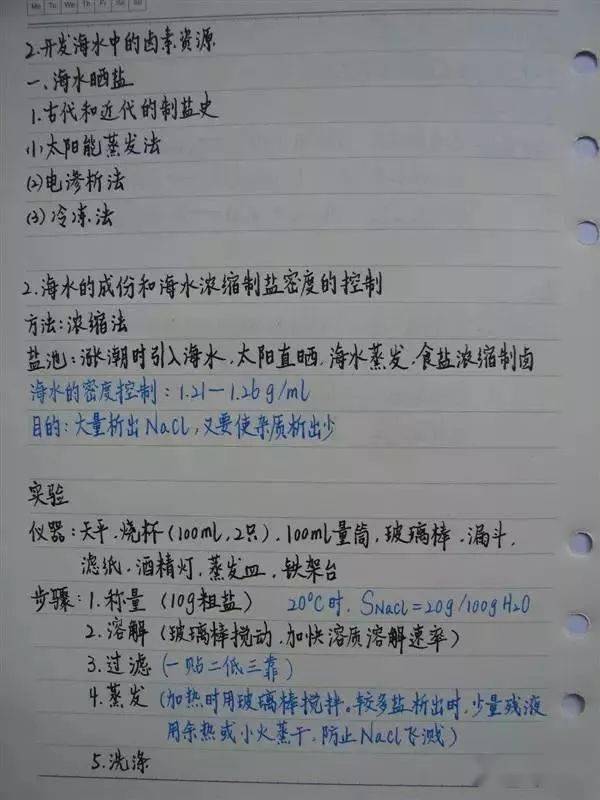 Mo Tu We Th Fr Sa Su
2.开发海水中的卤素资源
一、海水晒盐
1.古代和近代的制盐史
(1)太阳能蒸发法
(2)电渗析法
(3)冷冻法
2.海水的成份和海水浓缩制盐密度的控制
方法:浓缩法
盐池:涨潮时引入海水.太阳直晒.海水蒸发.食盐浓缩制卤
海水的密度控制:1.21—1.26g/ml
目的:大量析出NaCl,又要使杂质析出少
实验
仪器:天平.烧杯(100ml,2只).100ml量筒.玻璃棒.漏斗.
滤纸.酒精灯.蒸发皿.铁架台
步骤:1.称量(10g粗盐) 20°C时.SNaCl=20g/100gH2O
2.溶解(玻璃棒搅动.加快溶质溶解速率)
3.过滤(一贴二低三靠)
4.蒸发(加热时用玻璃棒搅拌。较多盐析出时,少量残液
用余热或小火蒸干.防止NaCl飞溅)
5.洗涤